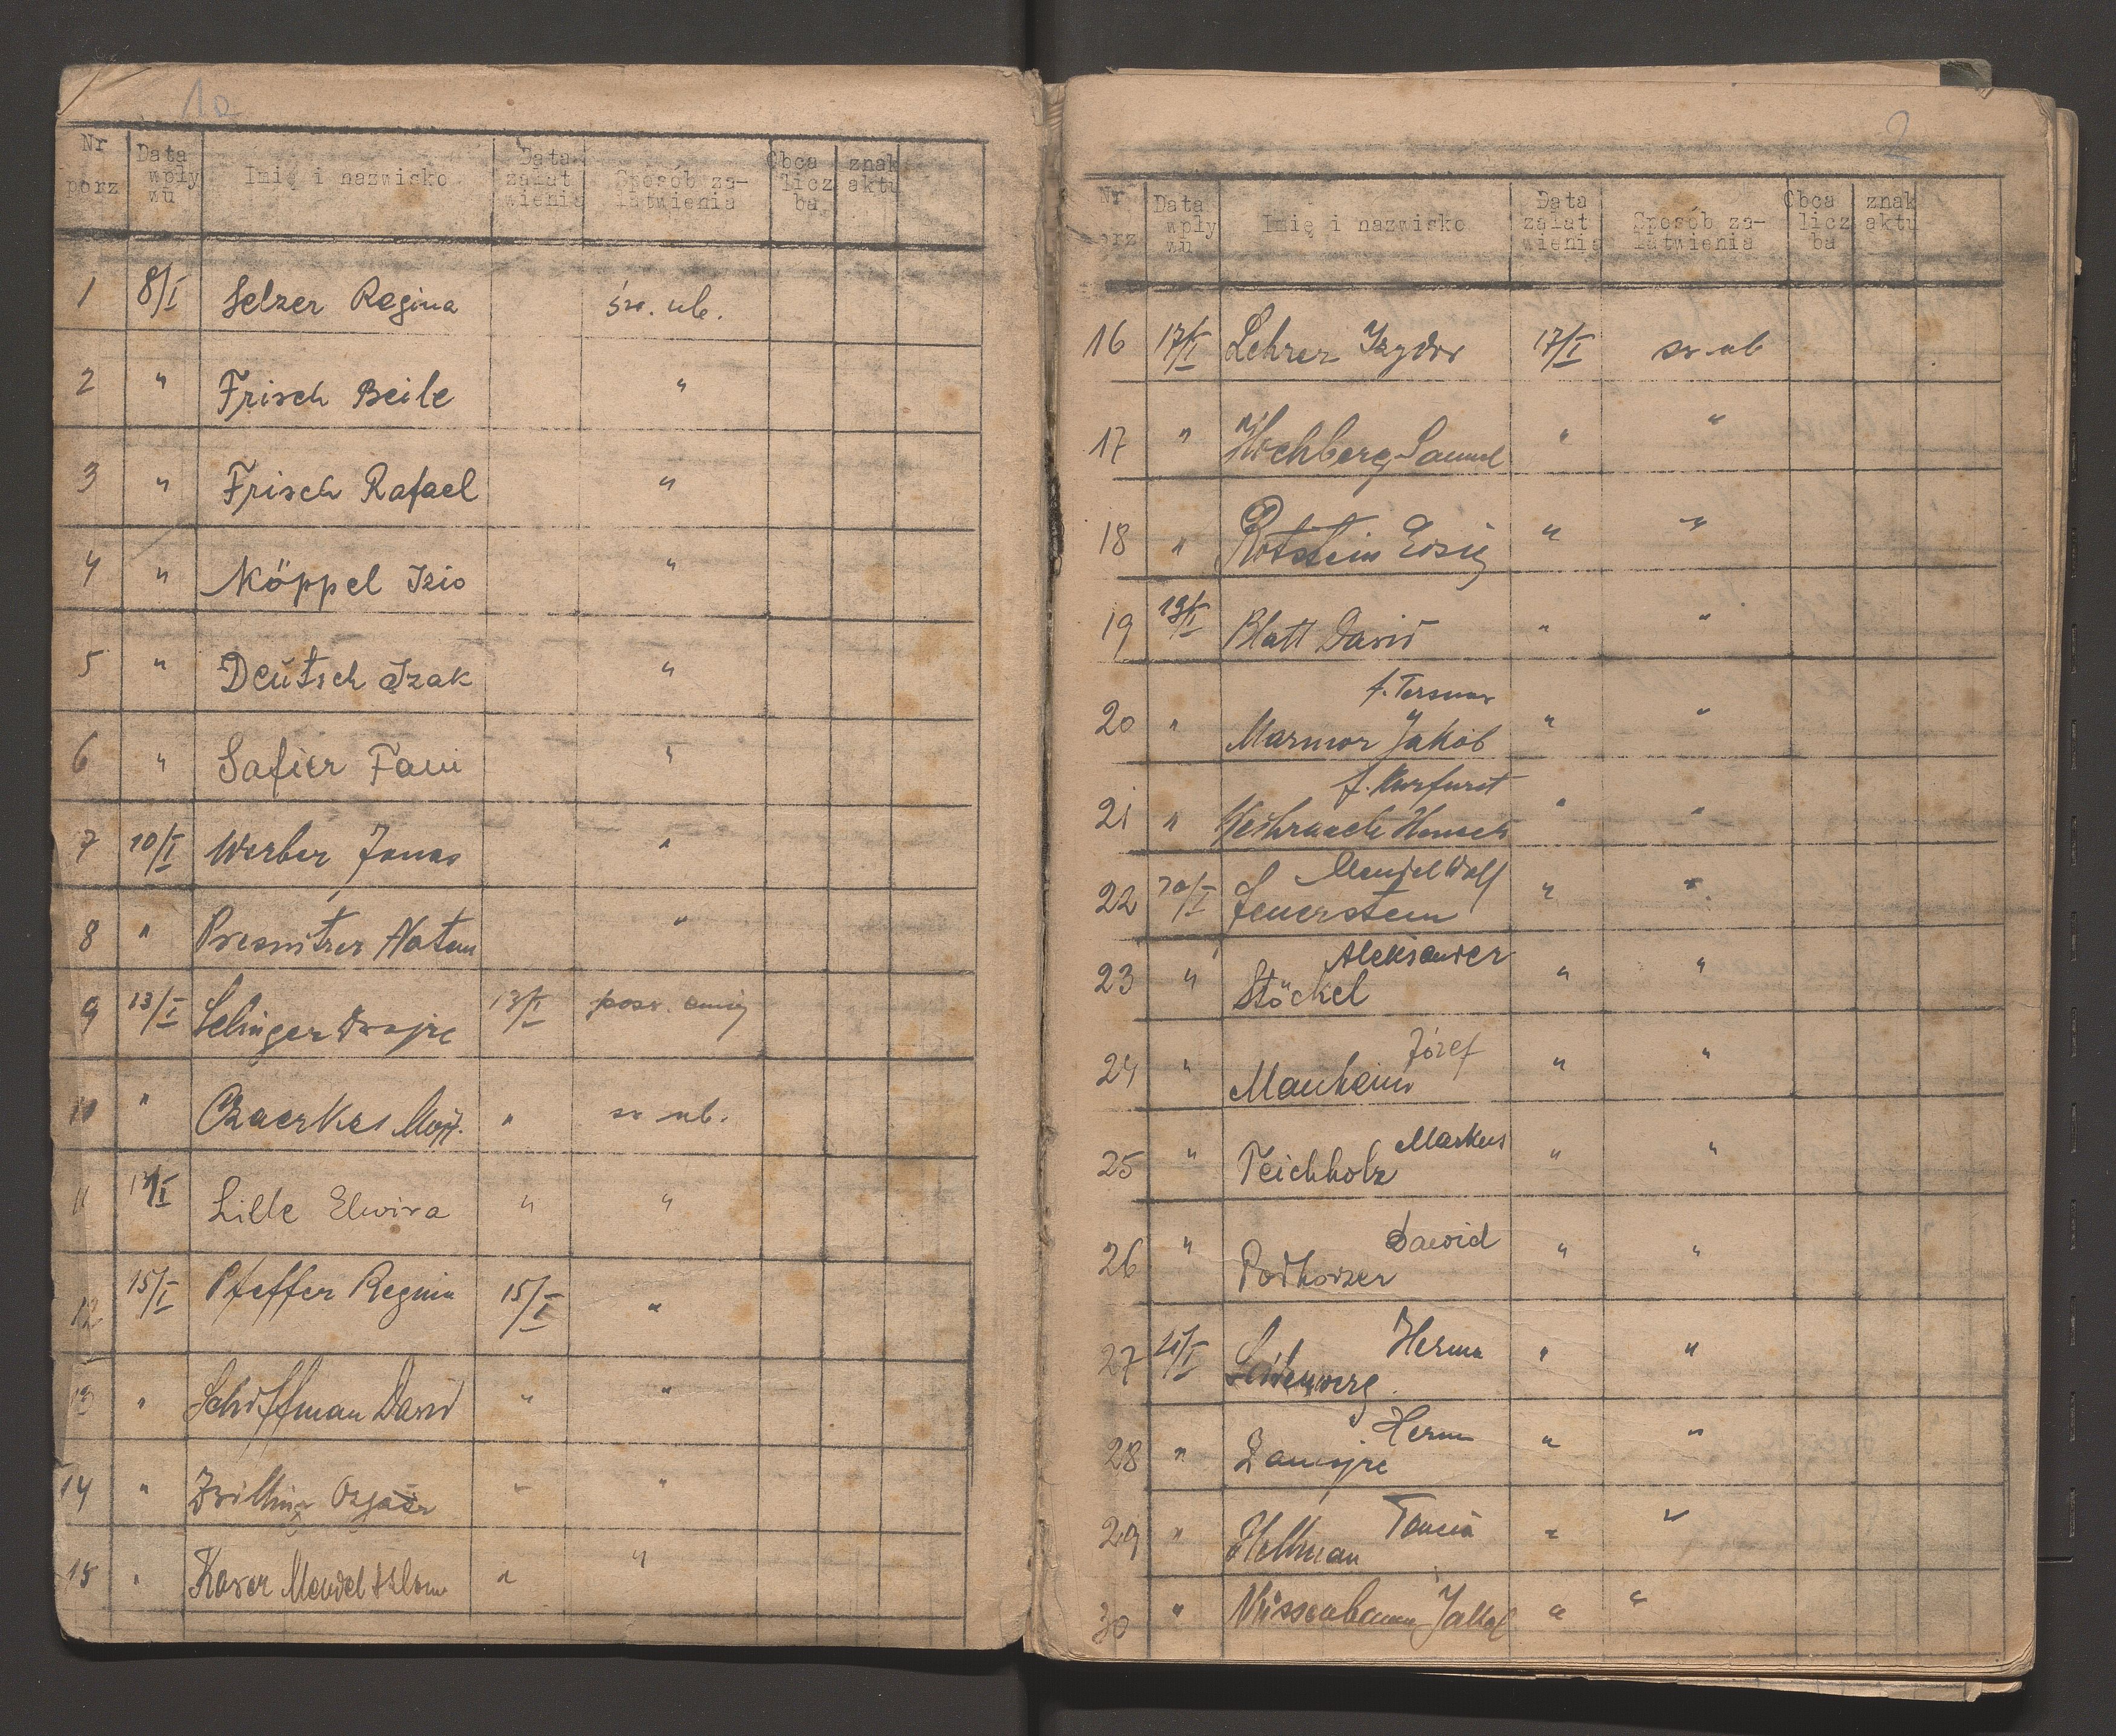 1a
Nr porz | Data wpły wu | Imię i nazwisko | Data załat wienia | Sposób za- łatwienia | Obca licz ba | znak aktu
1 8/I Selzer Regina św. ub.
2 " Frisch Beile "
3 " Frisch Rafael "
4 " Köppel Izio "
5 " Deutsch Izak "
6 " Safier Fani "
7 10/I Werber Jonas "
8 " Natan "
9 13/I Selinger 13/I
10 " Czaczkes Mojż. " sw ub.
11 14/I Lille Elwira " "
12 15/I Pfeffer Regina 15/I "
13 " Schiffman David " "
14 " " "
15 " Mendel " "
2
Nr porz | Data wpły wu | Imię i nazwisko | Data załat wienia | Sposób za- łatwienia | Obca licz ba | znak aktu
16 17/I Lehrer Izydor 17/I sw ub
17 " Samuel " "
18 " Rotstein Eisig " "
19 19/I Blatt David " "
f.
20 " Marmor Jakob " "
f. Kurfurst
21 " " "
Mendel Wolf
22 20/I Feuerstein " "
Aleksander
23 " Stöckel " "
Józef
24 " Manheim " "
Markus
25 " Teichholz " "
Dawid
26 " Podhorzer " "
27 21/I " "
28 " " "
29 " Hellman " "
30 " Nussenbaum Jakob " "